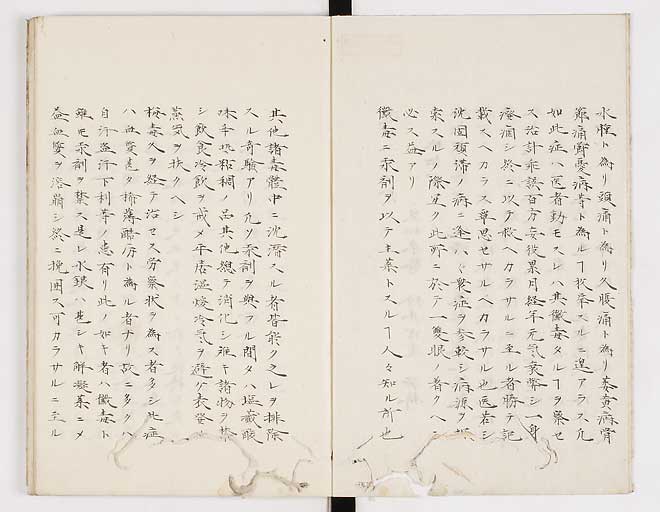 水腫ト為リ頭痛ト為リ久腹痛ト為リ萎黄病骨
節痛鬱憂病等ト為ルヿ枚挙スルニ遑アラス凡
如此症ハ医者動モスレハ其黴毒タルヿヲ察セ
ス治計乖誤百方妄投累月経年元気衰弊シ一身
痿凋シ終ニ以テ救ヘカラサルニ至ル者勝テ記
載スヘカラス畢思セサルヘカラサル也医若シ
沈固頑滞ノ病ニ逢ハヽ異症ヲ参較シ病源ヲ
索スルノ際宜ク此所ニ於テ一隻眼ノ着クヘシ
必ス益アリ
黴毒ニ汞剤ヲ以テ主薬トスルヿ人々知ル所也
其他諸毒體中ニ沈滞スル者皆能ク之レヲ排除
スル奇験アリ凡ソ汞剤ヲ與フル間タハ塩蔵酸
味辛烈黏稠ノ品其他總テ消化シ難キ諸物ヲ禁
シ飲食冷飲ヲ戒メ平居温煖冷気ヲ避ケ衣
蒸気ヲ扶クヘシ
梅毒久ヲ経テ治セス労瘵状ヲ為ス者多シ此症
ハ血質尫稀薄酷厉ト為ル者ナリ故ニ多クハ
自汗盗汗下利等ノ患有リ此ノ如キ者ハ黴毒ト
雖モ汞剤ヲ禁ス是レ水銀ハ甚シキ解凝薬ニメ
益血質ヲ溶崩シ終ニ挽回ス可カラサルニ至ル